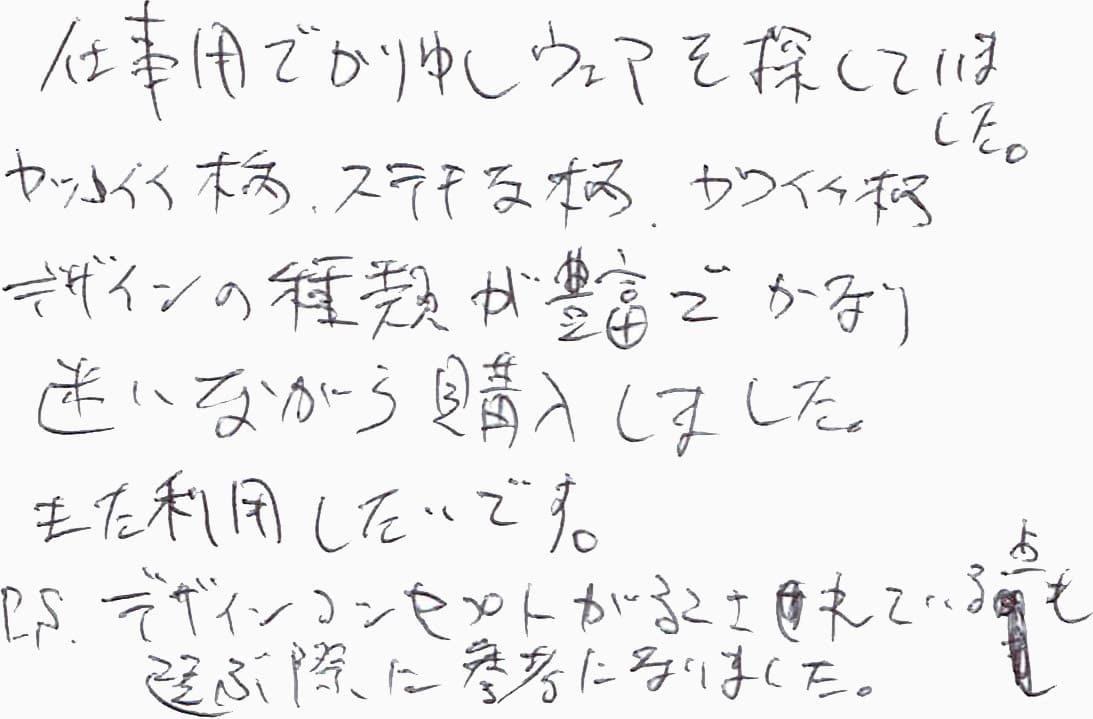 仕事用でかりゆしウェアを探していま
した。
カッコイイ柄、ステキな柄、カワイイ柄
デザインの種類が豊富でかなり
迷いながら購入しました。
また利用したいです。
P.S. デザインコンセプトが 来ている点も
選ぶ際に参考になりました。